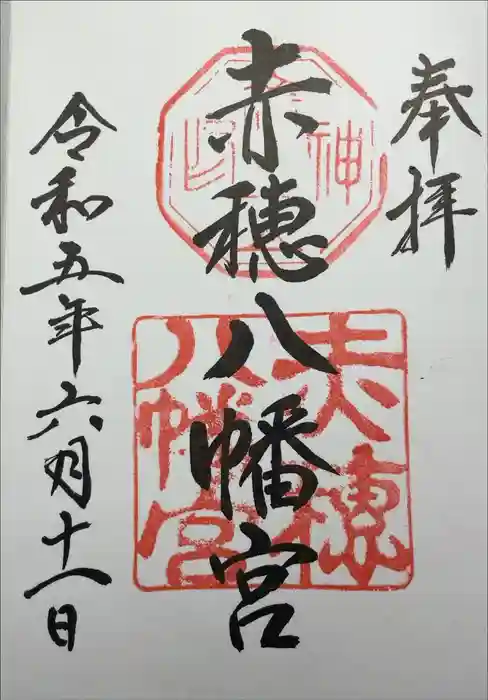 奉拝
赤穂八幡宮
令和五年六月十一日
神
赤穂
八幡宮